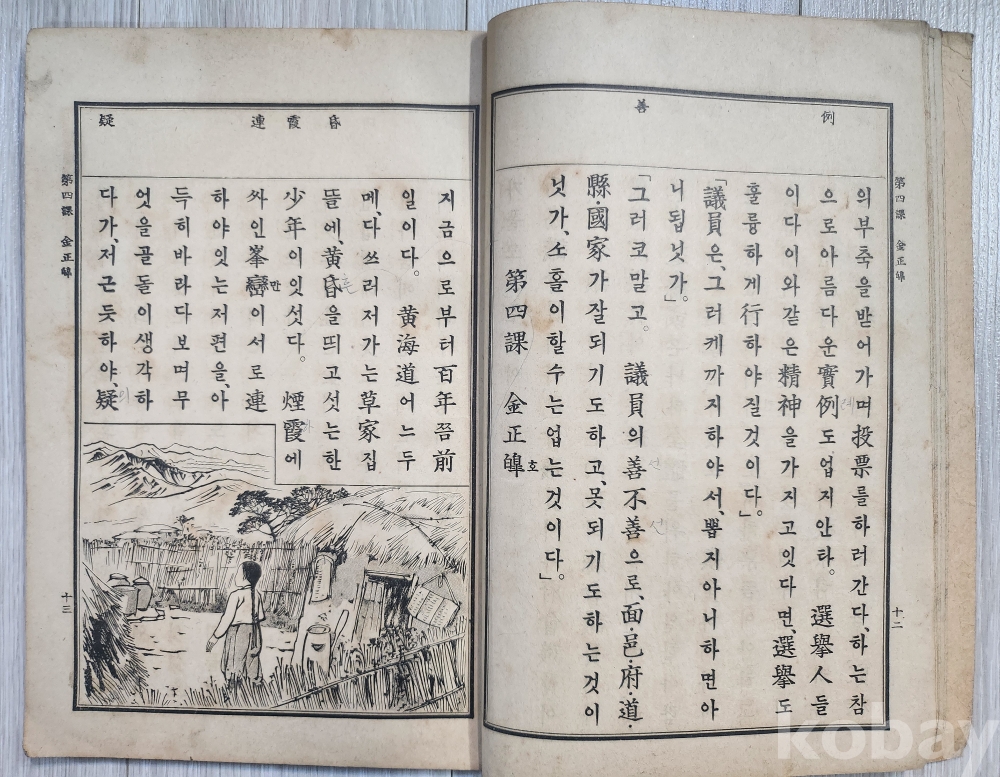 例
善
第四課 金正皥
의부축을받어가며投票를하러간다、하는참
으로아름다운實例도업지안타。 選擧人들
이다이와같은精神을가지고잇다면、選擧도
훌륭하게行하야질것이다」。
「議員은、그러케까지하야서、뽑지아니하면아
니됩닛가」。
「그러코말고。 議員의善不善으로、面・邑・府・道・
縣・國家가잘되기도하고、못되기도하는것이
닛가、소홀이할수는업는것이다」。
第四課 金正皥호
十二
昏
霞
連
疑
지금으로부터百年쯤前
일이다。 黃海道어느두
메、다쓰러저가는草家집
뜰에、黃昏을띄고섯는한
少年이잇섯다。 煙霞에
싸인峯巒만이서로連
하야잇는저편을、아
득히바라다보며무
엇을골돌이생각하
다가、저근듯하야、疑
第四課 金正皥
十三
kobay